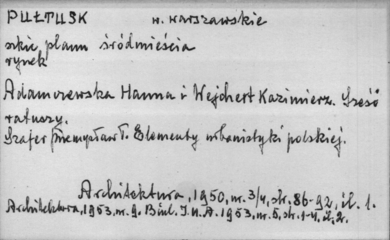 PUŁTUSK w. warszawskie
szkic planu śródmieścia
rynek
Adamczewska Hanna i Wejchert Kazimierz. Sześć
ratuszy.
Szafer Przemysław T. Elementy urbanistyki polskiej.
Architektura, 1950, nr. 3/4, str. 86-92, il. 1.
Architektura, 1953, nr. 9. Biul. I.U.A. 1953, nr. 5, str. 1-4, il. 2.